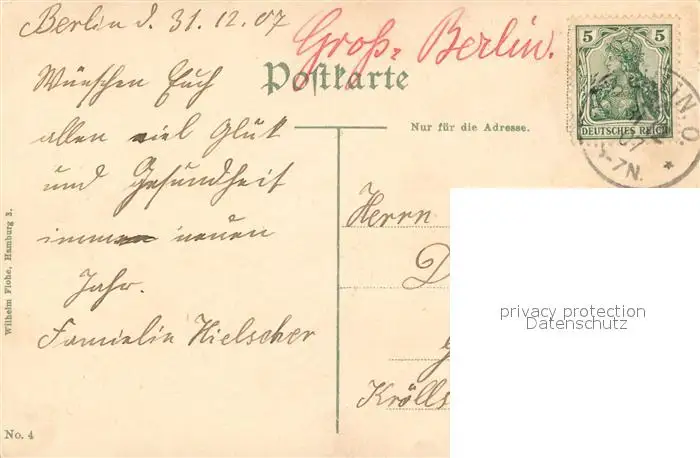 Berlin d. 31.12.07
Groß-Berlin.
Wünschen Euch
allen viel Glük
und Gesundheit
immen neuen
Jahr.
Familie Hielscher
Postkarte
Nur für die Adresse.
5 5
DEUTSCHES REICH
5-7N.
Herrn
D
Krölls
Wilhelm Flohe, Hamburg 3.
No. 4
privacy protection
Datenschutz